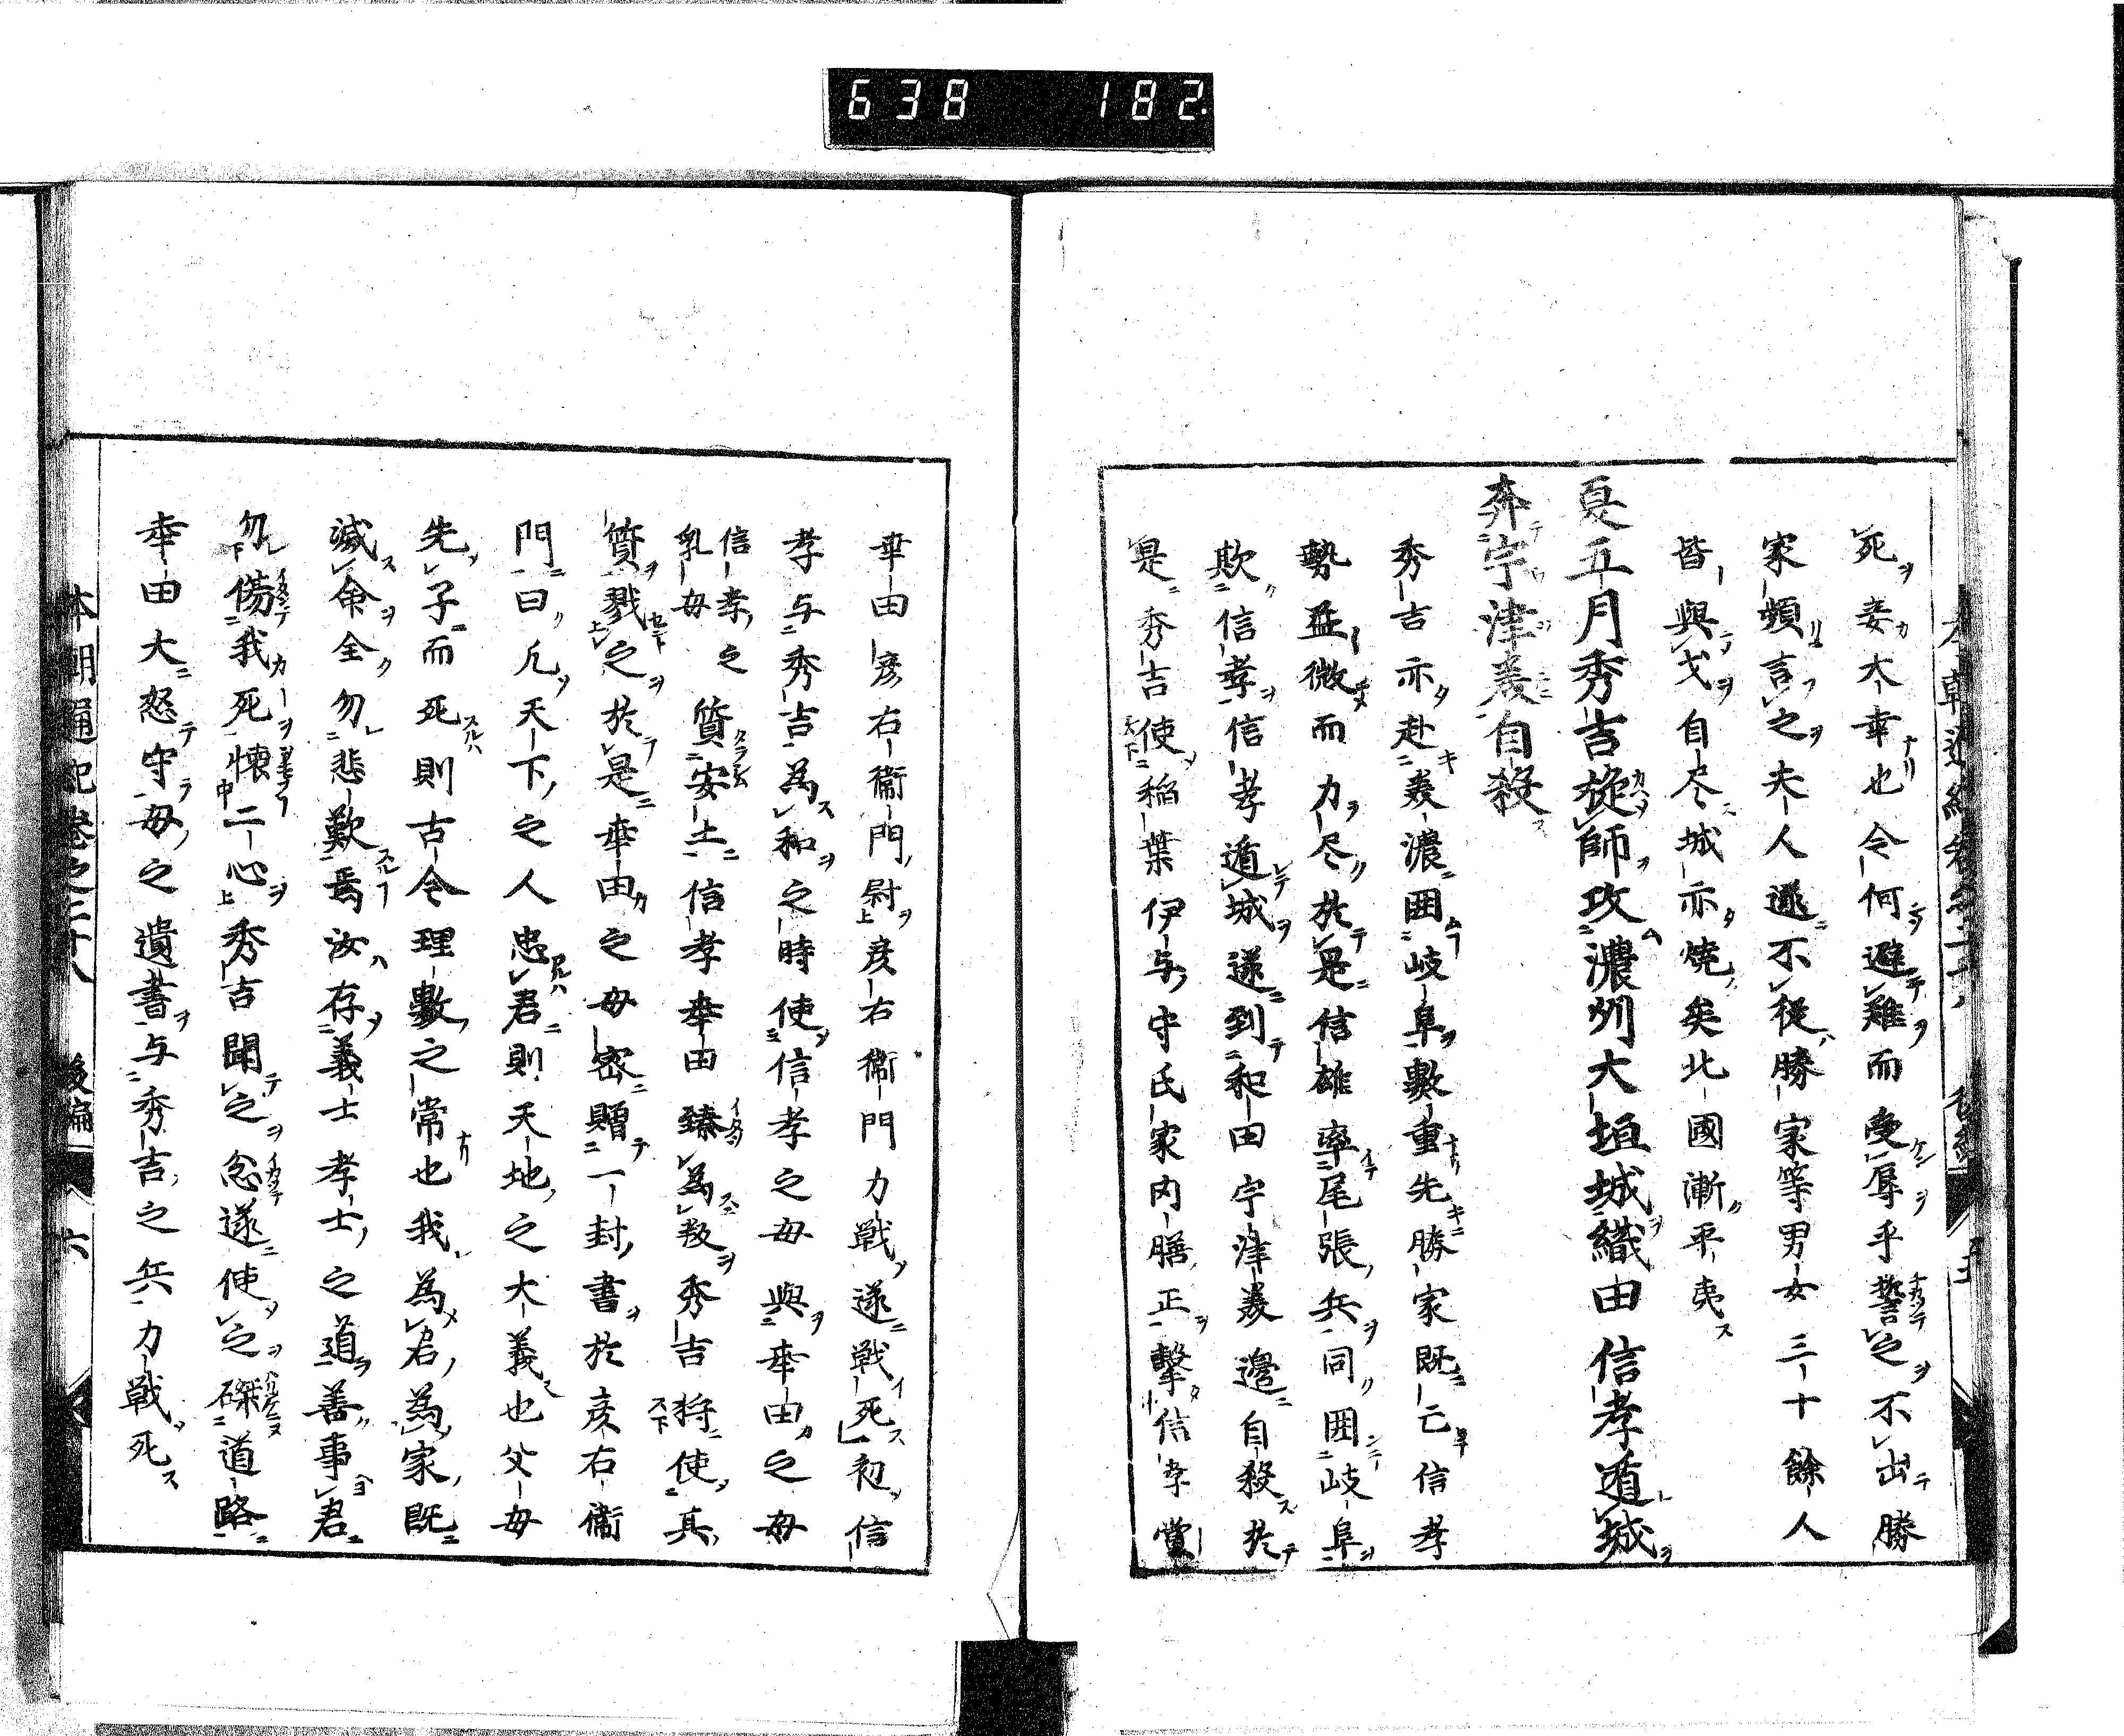 638 182
死妾大幸也今何避難而受辱乎誓之不出勝
家頻言之夫人遂不從勝家等男女三十餘人
皆與戈自尽城亦燒矣北國漸平夷
夏五月秀吉旋師攻濃州大垣城織田信孝遁城
奔宇津義自殺
秀吉亦赴美濃囲岐阜數重先勝家既亡信孝
勢益微而力尽於是信雄率尾張兵同囲岐阜
欺信孝信孝遁城遂到和田宇津義邊自殺於
是秀吉使稲葉伊与守氏家内膳正擊信孝黨
幸田彦右衛門尉彦右衛門力戰遂戰死初信
孝与秀吉為和之時使信孝之母與幸田之母
信孝之乳母質安土信孝幸田臻為叛秀吉将使其
質戮之於是幸田之母密贈一封書於彦右衛
門曰凡天下之人忠君則天地之大義也父母
先子而死則古今理數之常也我為君為家既
滅命全勿悲歎焉汝存義士孝士之道善事君
勿傷我死懐二心秀吉聞之忿遂使之磔道路
幸田大怒守母之遺書与秀吉之兵力戰死
本朝通紀卷之二十八 後編 六